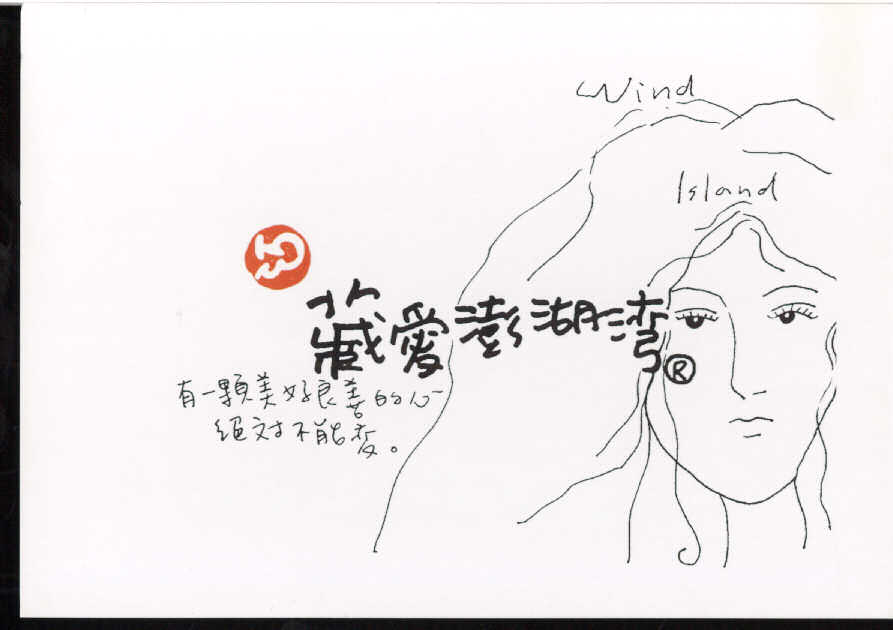 Wind
Island
藏愛澎湖灣
®
有一顆美好良善的心
絕对不能变。